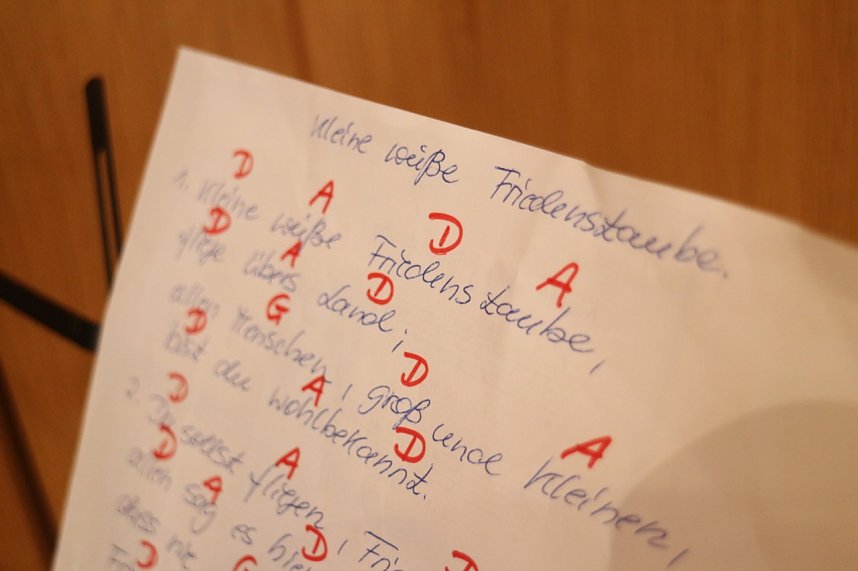 Kleine weiße Friedenstaube.
D A D A
1. Kleine weiße Friedenstaube,
D A D
fliege übers Land;
G D A
allen Menschen, groß und kleinen,
D A D
bist du wohlbekannt.
D A D
2. Du sollst fliegen, Frie
D A D
allen sag es hier
dass nie
D G